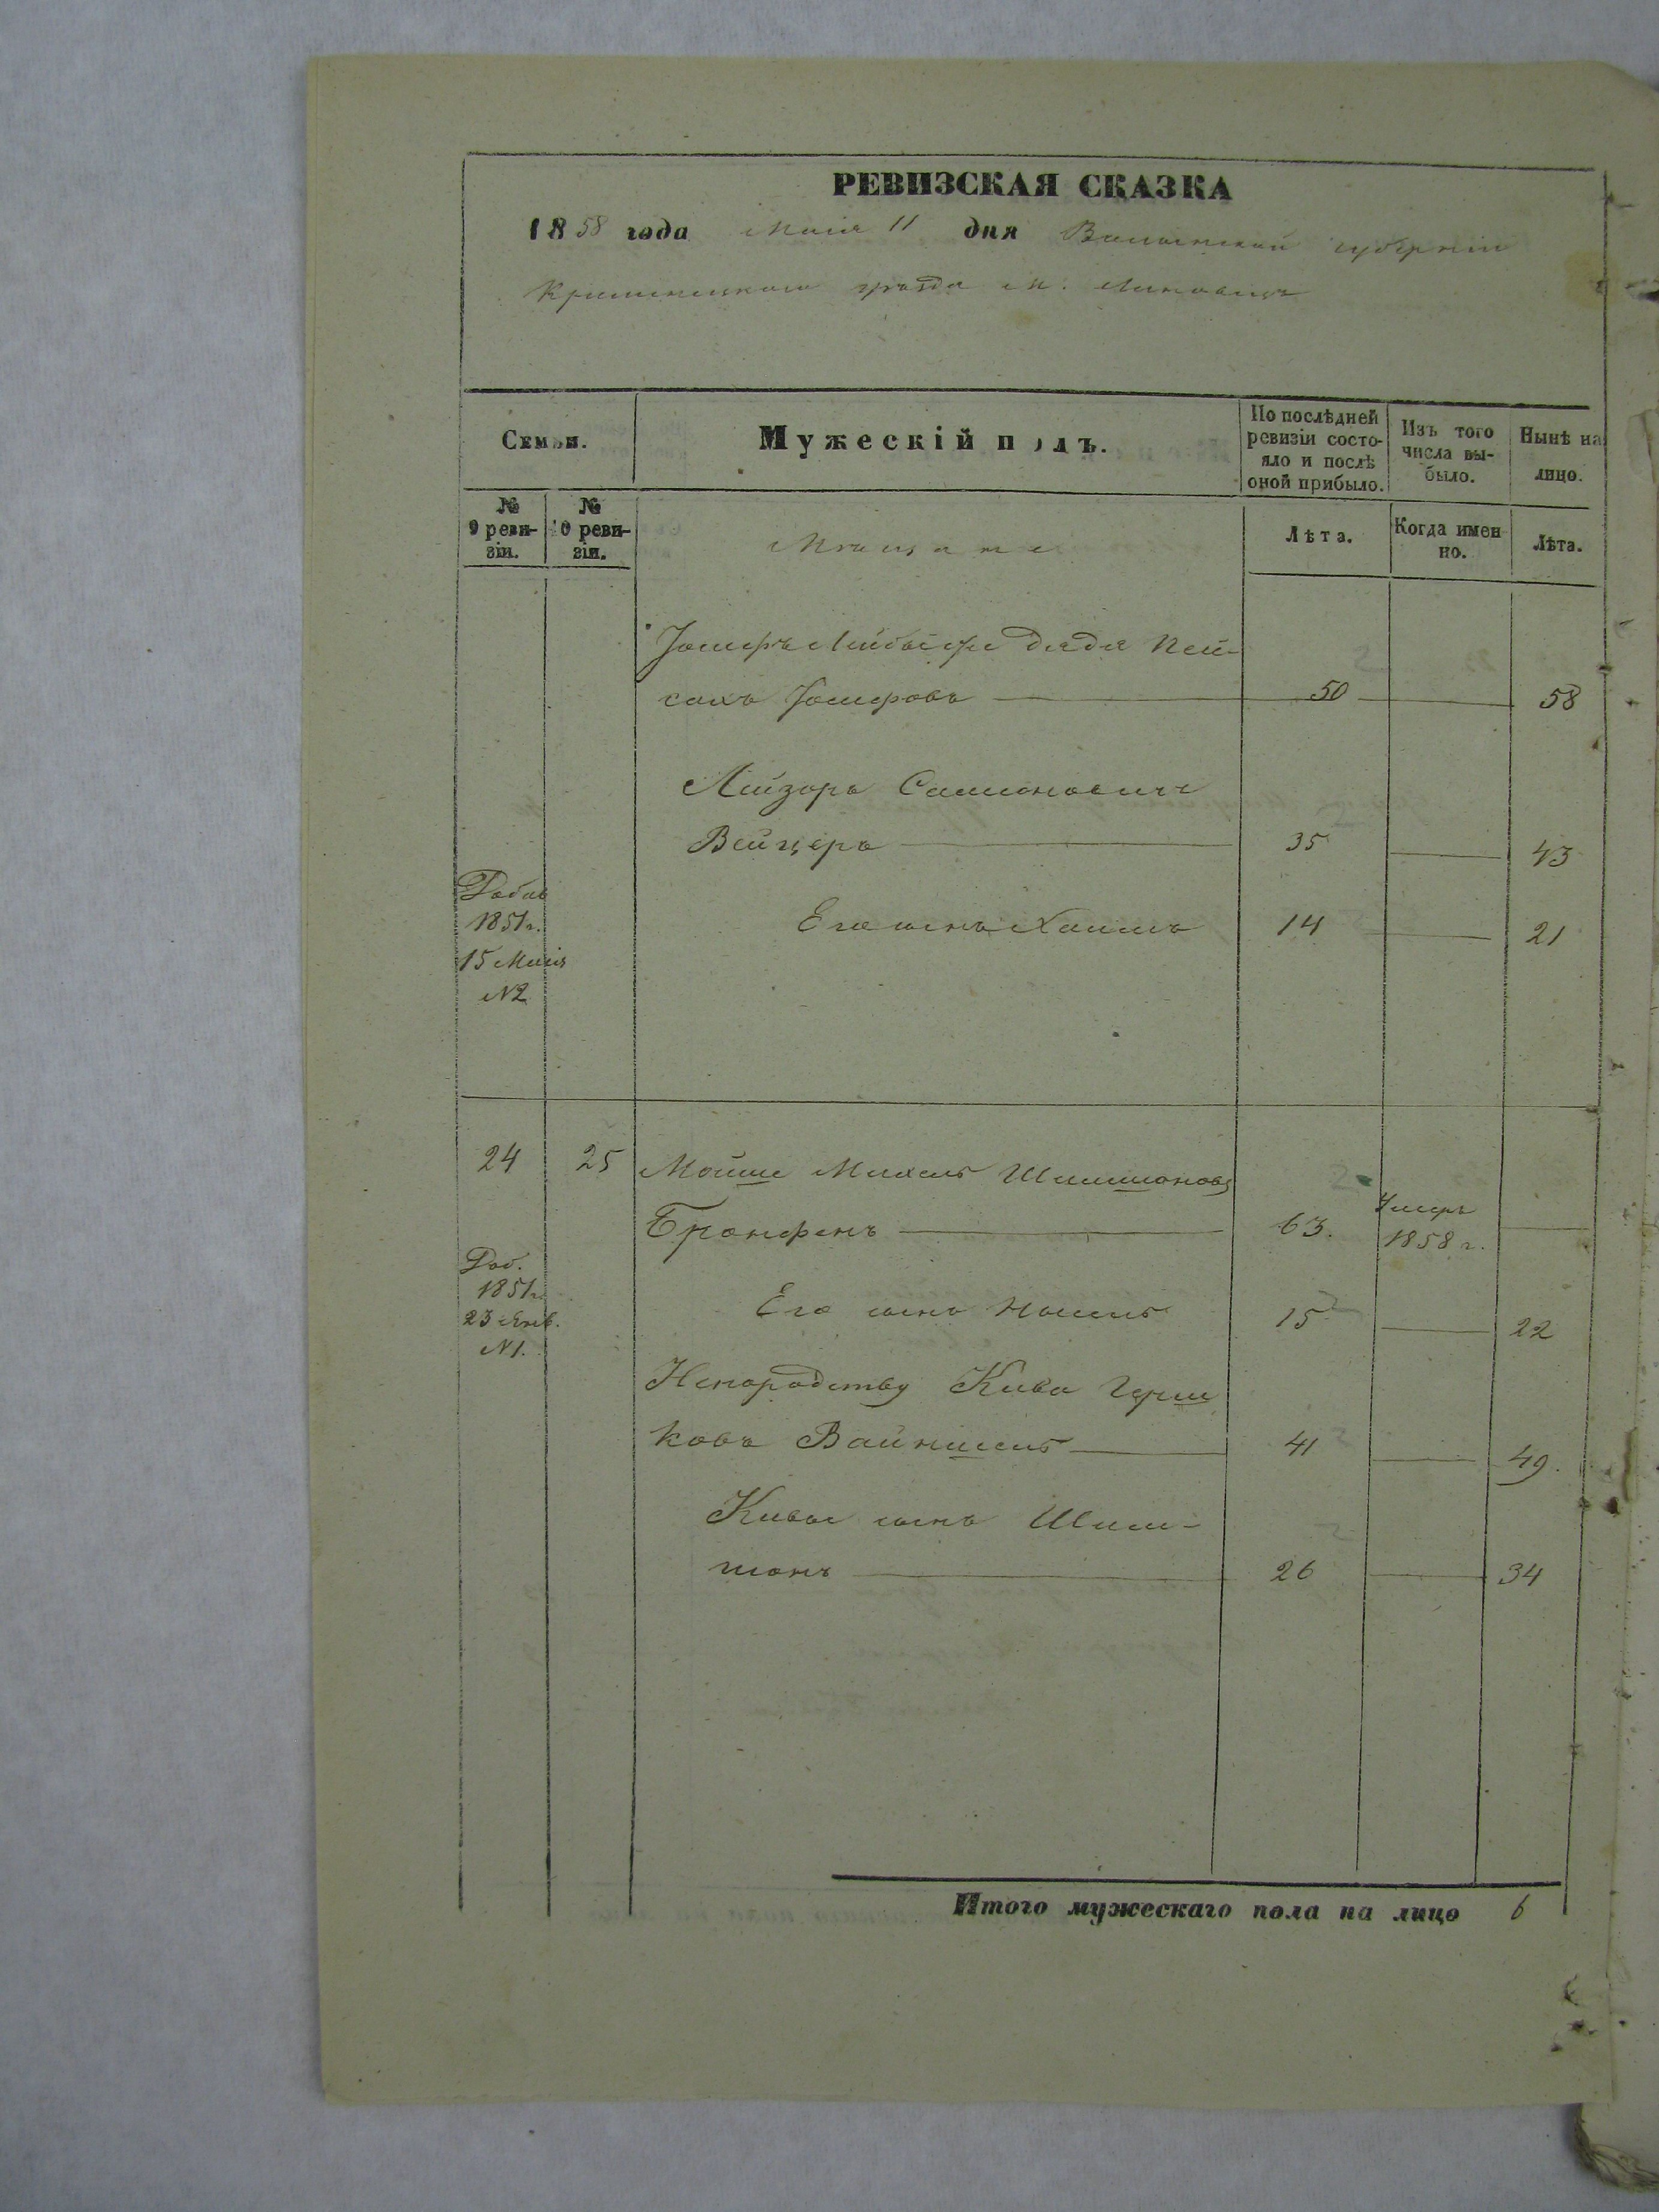 РЕВИЗСКАЯ СКАЗКА
1858 года Маія 11 дня Волынской губерніи
Кременецкаго уѣзда м.
Семьи.
Мужескій полъ.
По послѣдней ревизіи состояло и послѣ оной прибыло.
Изъ того числа выбыло.
Нынѣ на лицо.
№ 9 ревизіи.
№ 10 ревизіи.
Мѣщане
Лѣта.
Когда именно.
Лѣта.
Іосифъ Лейбы дядя Пей-
сахъ Іосифовъ 50 58
Лейзоръ
Вейцеръ 35 43
Добав
1851 г.
15 Маія
№2
Его сынъ Хаимъ 14 21
24 25 Мойше Михель Шлимоновъ
Бронфенъ 63. Умеръ 1858 г.
Доб.
1851 г.
23 Янв.
№1.
Его сынъ 15 22
Непородству Кива Герш
ковъ 41 49.
Кивы сынъ Шли-
монъ 26 34
Итого мужескаго пола на лицо 6